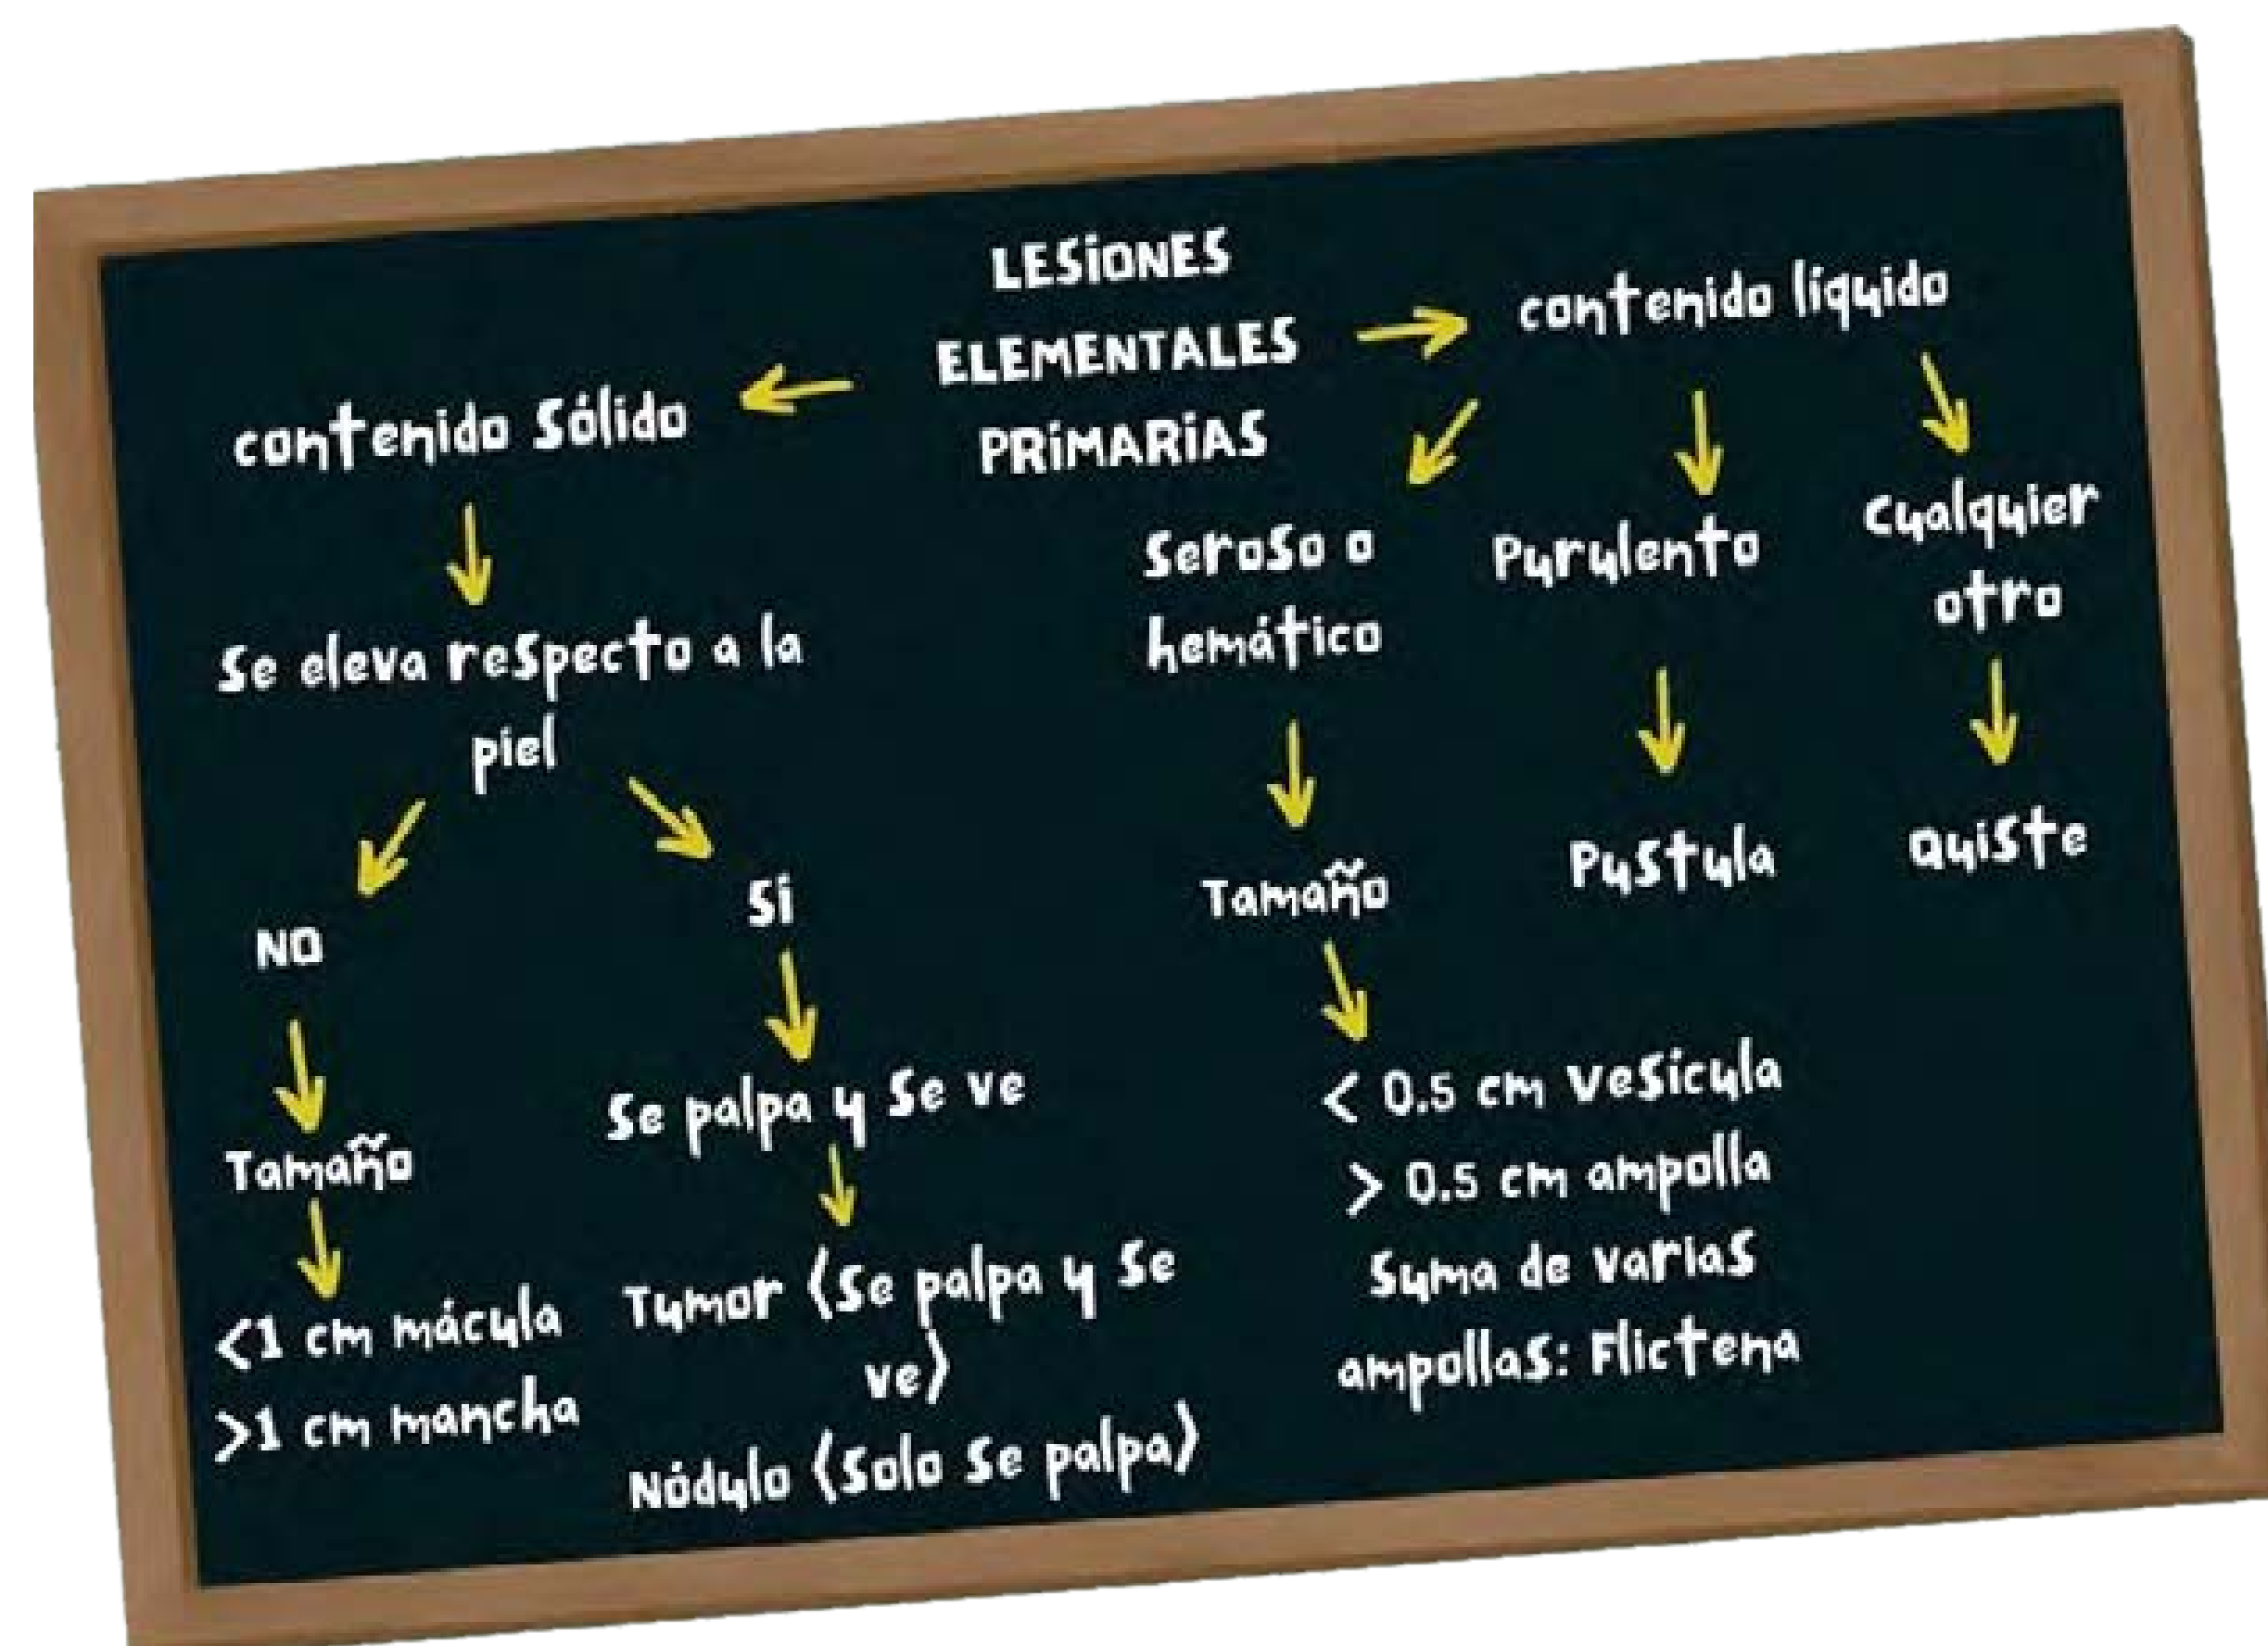 LESIONES
ELEMENTALES
PRIMARIAS
contenido sólido
Se eleva respecto a la
piel
NO
Tamaño
<1 cm mácula
>1 cm mancha
Si
Se palpa y se ve
Tumor (Se palpa y se
ve)
Nódulo (Solo se palpa)
contenido líquido
Seroso o
hemático
Tamaño
< 0.5 cm vesícula
> 0.5 cm ampolla
Suma de varias
ampollas: Flictena
Purulento
Pustula
Cualquier
otro
Quiste